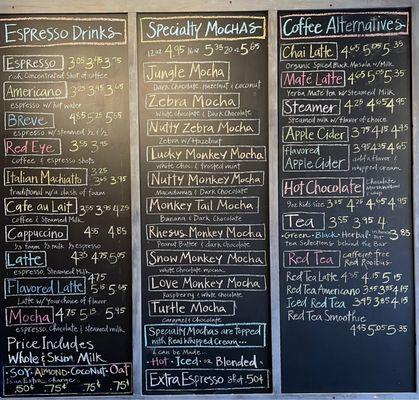 Espresso Drinks
Espresso 3.05 3.45 3.75
rich Concentrated Shot of coffee
Americano 3.05 3.45 3.95
espresso w/ hot water
Breve 4.85 5.25 5.65
espresso w/ steamed ½ & ½
Red Eye 3.55 3.95
coffee & espresso shots
Italian Machiatto 3.25 3.75 3.95
traditional w/ a dash of foam
Cafe au Lait 3.55 3.95 4.25
coffee & steamed Milk
Cappuccino 4.55 4.85
½ foam ½ milk ½ espresso
Latte 4.35 4.75 5.05
espresso, Steamed Milk
Flavored Latte 4.75 5.15 5.65
Latte w/ Your choice of flavor
Mocha 4.75 5.15 5.45
espresso, chocolate & steamed milk
Price Includes
Whole & Skim Milk
Soy · Almond · Coconut · Oat
is an Extra charge
.50¢ .75¢ .75¢ .75¢
Specialty Mochas
12oz 4.95 16oz 5.35 20oz 5.65
Jungle Mocha
Dark Chocolate, Hazelnut & Coconut
Zebra Mocha
White Chocolate & Dark Chocolate
Nutty Zebra Mocha
Zebra w/ Hazelnut
Lucky Monkey Mocha
white choc. & Irish mint
Nutty Monkey Mocha
Macadamia & Dark Chocolate
Monkey Tail Mocha
Banana & Dark Chocolate
Rhesus Monkey Mocha
Peanut Butter & Dark chocolate
Snow Monkey Mocha
White chocolate mocha
Love Monkey Mocha
Raspberry & White chocolate
Turtle Mocha
Caramel & Chocolate
Specialty Mochas are topped
with Real Whipped Cream...
& can be Made...
Hot · Iced or Blended
Extra Espresso shot .50¢
Coffee Alternatives
Chai Latte 4.65 5.05 5.35
Organic Spiced Black Masala w/ Milk
Maté Latte 4.65 5.05 5.35
Yerba Mate Tea w/ Steamed Milk
Steamer 4.25 4.65 4.95
Steamed milk w/ flavor of choice
Apple Cider 3.75 4.15 4.45
Flavored
Apple Cider 3.95 4.35 4.65
add a flavor &
whipped cream
Hot Chocolate
8oz kids size 3.25
Tea 3.55 3.95
Green · Black · Herbal 3.85
Tea Selections behind the Bar
Red Tea caffeine free
Red Rooibos
Red Tea Latte
Red Tea Americano
Iced Red Tea 3.45 3.85 4.15
Red Tea Smoothie
4.65 5.05 5.35